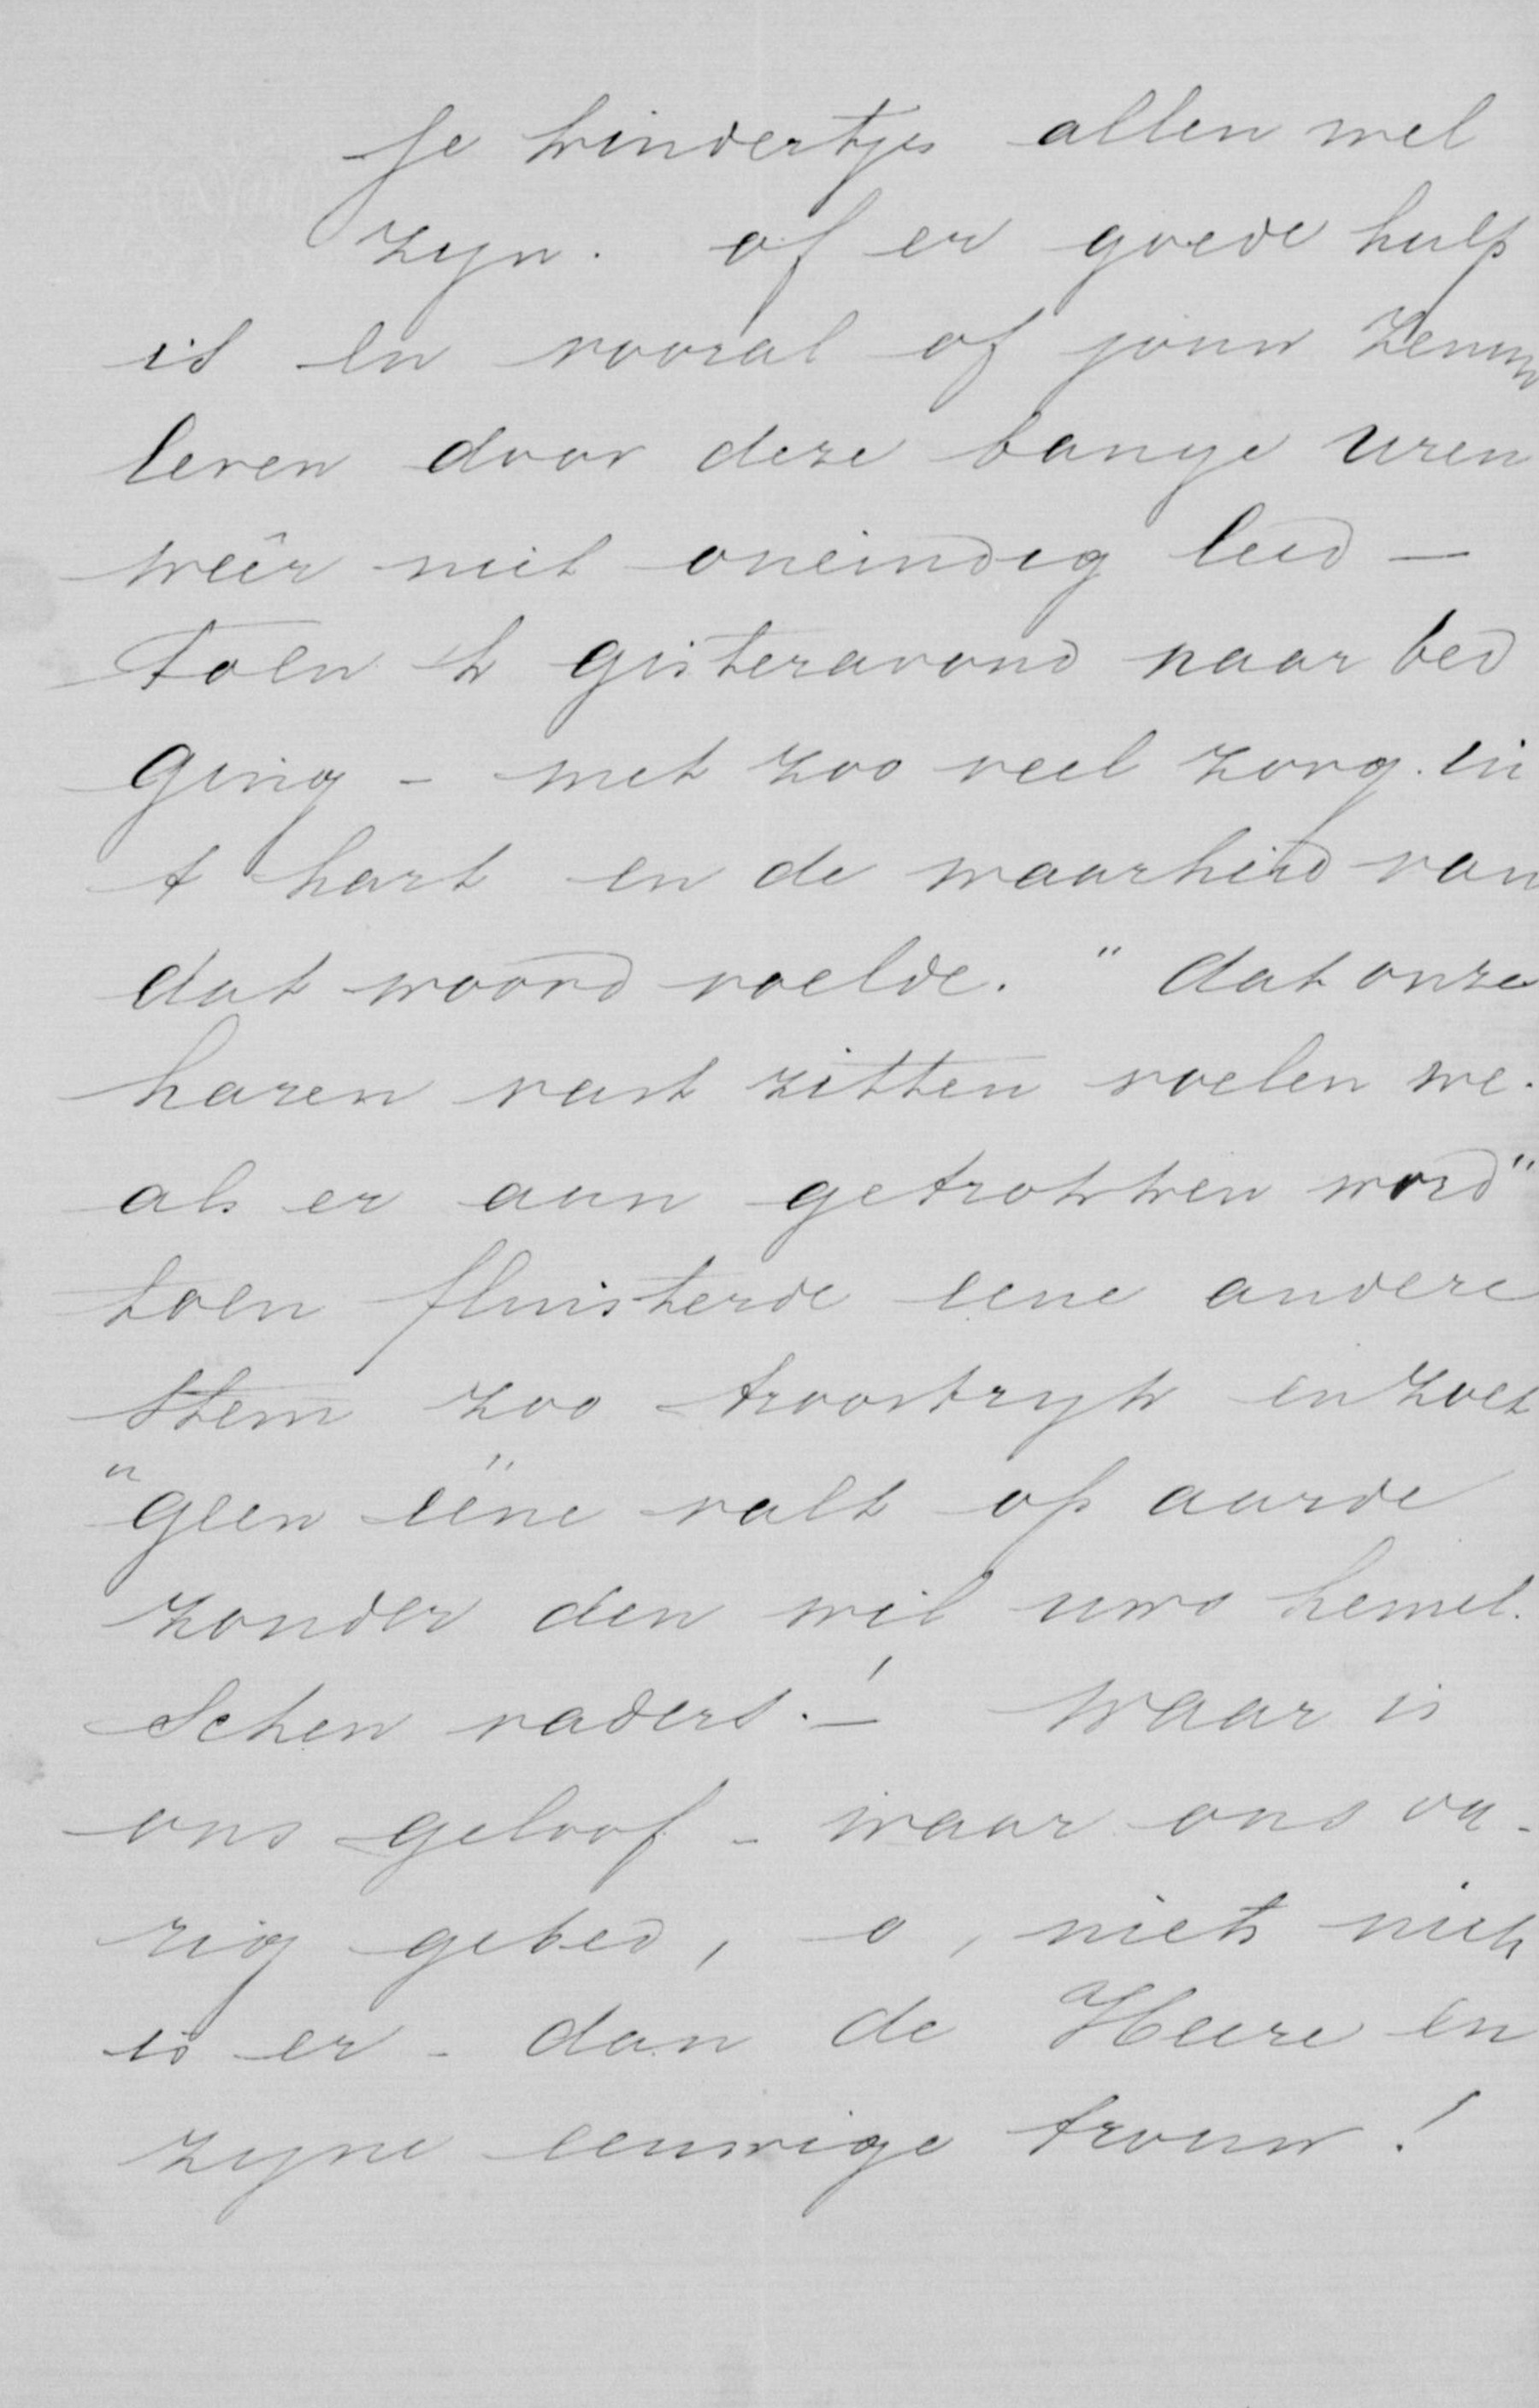 je kindertjes allen wel
zyn. of er goede hulp
is en vooral of jouw zenuw
leven door deze bange uren
weêr niet oneindig leed —
toen ik gisteravond naar bed
ging - met zoo veel zorg in
t hart en de waarheid van
dat woord voelde. "dat onze
haren vast zitten voelen we.
als er aan getrokken word"
toen fluisterde eene andere
stem zoo troostryk en zoet
"geen ééne valt op aarde
zonder den wil uws hemel.
schen vaders.' — Waar is
ons geloof - waar ons vu-
rig gebed, o, niets niets
is er - dan de Heere en
zyne eeuwige trouw!